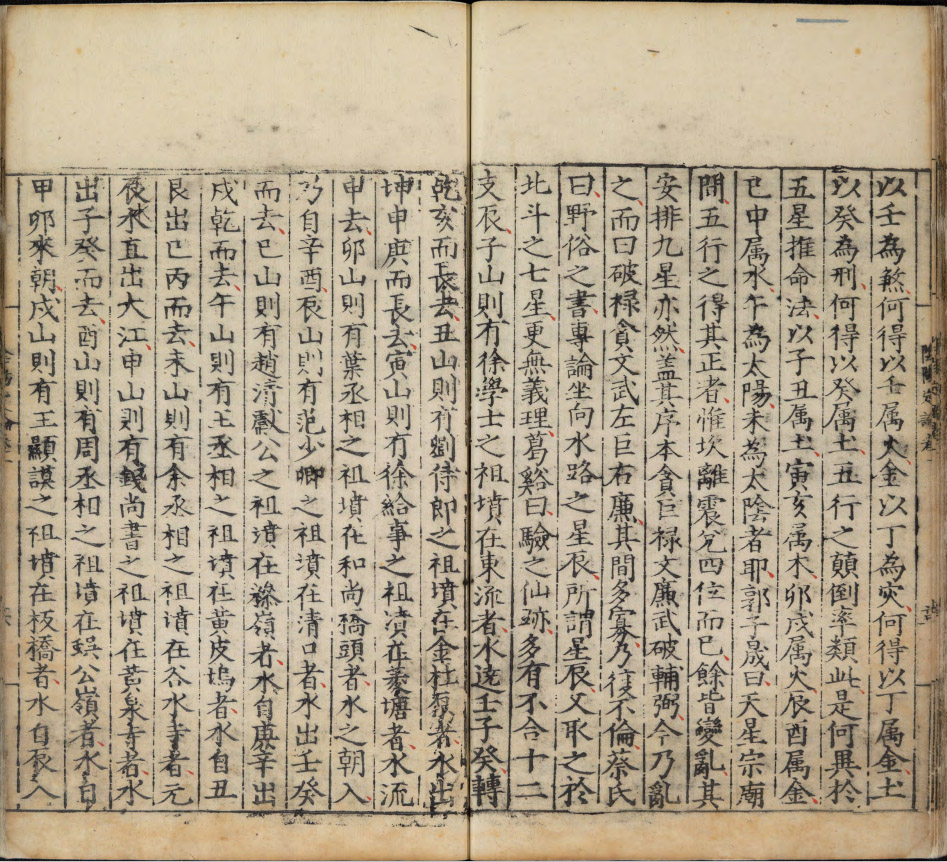 以壬為煞何得以壬属火金以丁為灾何得以丁属金土
以癸為刑何得以癸属土五行之顛倒率類此是何異於
五星推命法以子丑属土寅亥属木卯戌属火辰酉属金
巳申属水午為太陽未為太陰者耶郭子晟曰天星宗廟
問五行之得其正者惟坎離震兌四位而已餘皆變亂其
安排九星亦然盖其序本貪巨禄文廉武破輔弼今乃亂
之而曰破禄貪文武左巨右廉其間多寡乃復不倫蔡氏
曰野俗之書專論坐向水路之星辰所謂星辰又取之於
北斗之七星更無義理葛谿曰驗之仙跡多有不合十二
支辰子山則有徐學士之祖墳在東流者水遶壬子癸轉
乾亥而長去丑山則有劉侍郎之祖墳在金杜者水出
坤申庚而長去寅山則有徐給事之祖墳在菱塘者水流
申去卯山則有葉丞相之祖墳在和尚橋頭者水之朝入
乃自辛酉辰山則有范少卿之祖墳在清口者水出壬癸
而去巳山則有趙清獻公之祖墳在嶺者水自庚辛出
戌乾而去午山則有王丞相之祖墳在黃皮塢者水自丑
艮出巳丙而去未山則有余丞相之祖墳在谷水寺者元
長水直出大江申山則有錢尚書之祖墳在黃泉寺者水
出子癸而去酉山則有周丞相之祖墳在蜈公嶺者水自
甲卯來朝戌山則有王顯謨之祖墳在板橋者水自辰入